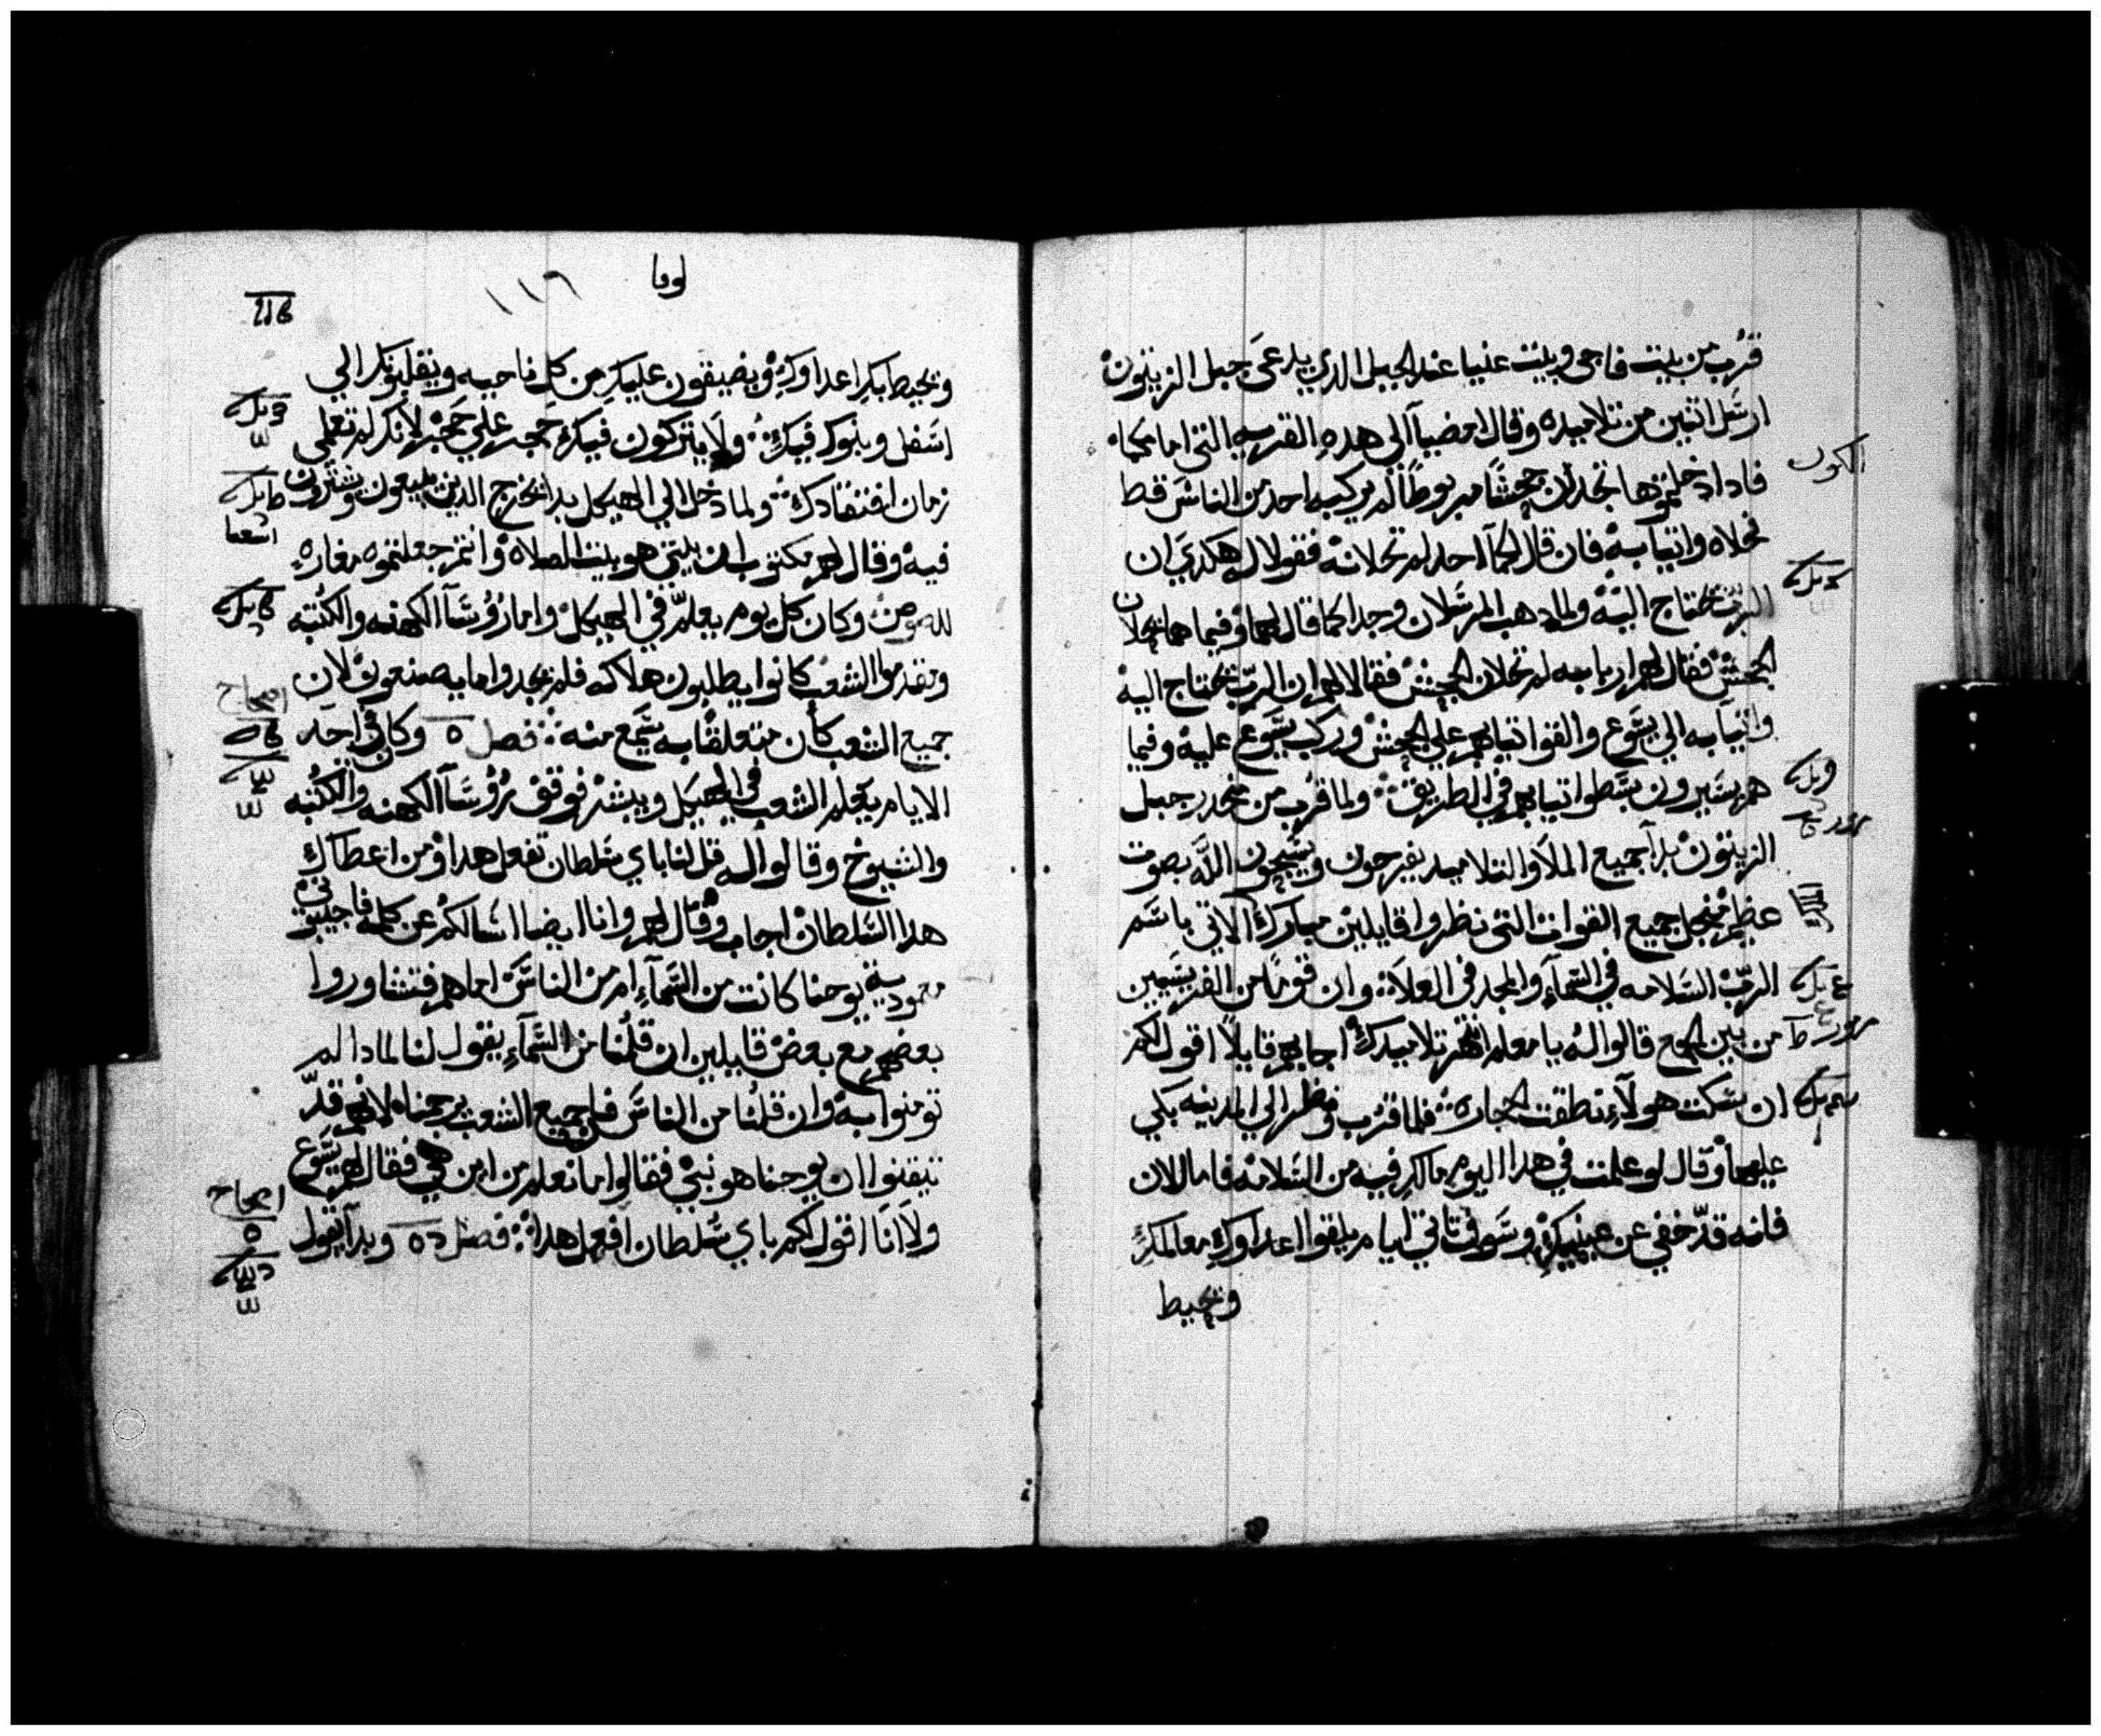 قرب من بيت فاجي وبيت عنيا عند الجبل الدي يدعي جبل الزيتون
ارسل اثنين من تلاميده وقال امضيا الي هده القريه التي امامكما
فادا دخلتموها تجدان جحشا مربوطا لم يركبه احد من الناس قط
فحلاه واتيا به فان قال لكما احد لم تحلانه فقولا له هكدي ان
الرب يحتاج اليه ولما دهب المرسلان وجدا كما قال لهما وفيما هما يحلان
الجحش فقال لهم اربابه لم تحلان الجحش فقالا لهم ان الرب يحتاج اليه
واتيا به الي يسوع والقوا تيابهم علي الجحش وركب يسوع عليه وفيما
هم يسيرون بسطوا تيابهم في الطريق ولما قرب من منحدر جبل
الزيتون بدا جميع الملا والتلاميد يفرحون ويسبحون الله بصوت
عظيم من اجل جميع القوات التي نظروا قايلين مبارك الاتي باسم
الرب السلامه في السماء والمجد في العلا وان قوما من الفريسيين
من بين الجمع قالوا له يا معلم انتهر تلاميدك اجابهم قايلا اقول لكم
ان سكت هولاء نطقت الحجاره فلما قرب ونظر الي المدينه بكي
عليها وقال لو علمت في هدا اليوم ما لك فيه من السلامه فاما الان
فانه قد خفي عن عينيك وسوف تاتي ايام يلقوا اعداوك معالمك
وتحيط
لوقا
١١٦
وتحيط بك اعداوك ويضيقون عليك من كل ناحيه ويقلبونك الي
اسفل وبنوك فيك ولا يتركون فيك حجر علي حجر لانك لم تعلمي
زمان افتقادك ولما دخل الي الهيكل بدا يخرج الدين يبيعون ويشترون
فيه وقال لهم مكتوب ان بيتي هو بيت الصلاه وانتم جعلتموه مغاره
للصوص وكان كل يوم يعلم في الهيكل واما روسا الكهنه والكتبه
وتقدموا الشعب كانوا يطلبون هلاكه فلم يجدوا ما يصنعون لان
جميع الشعب كان متعلقا به يسمع منه فصل وكان في احد
الايام يعلم الشعب في الهيكل ويبشر فوقف روسا الكهنه والكتبه
والشيوخ وقالوا له قل لنا باي سلطان تفعل هدا ومن اعطاك
هدا السلطان اجاب وقال لهم وانا ايضا اسالكم عن كلمه فاجيبوني
معموديه يوحنا كانت من السماء ام من الناس اما هم فتشاوروا
بعضهم مع بعض قايلين ان قلنا من السماء يقول لنا لمادا لم
تومنوا به وان قلنا من الناس فان جميع الشعب يرجمناه لانهم قد
تيقنوا ان يوحنا هو نبي فقالوا ما نعلم من اين هي فقال لهم يسوع
ولا انا اقول لكم باي سلطان افعل هدا فصل وبدا يقول
اشعيا
اصحاح
اصحاح